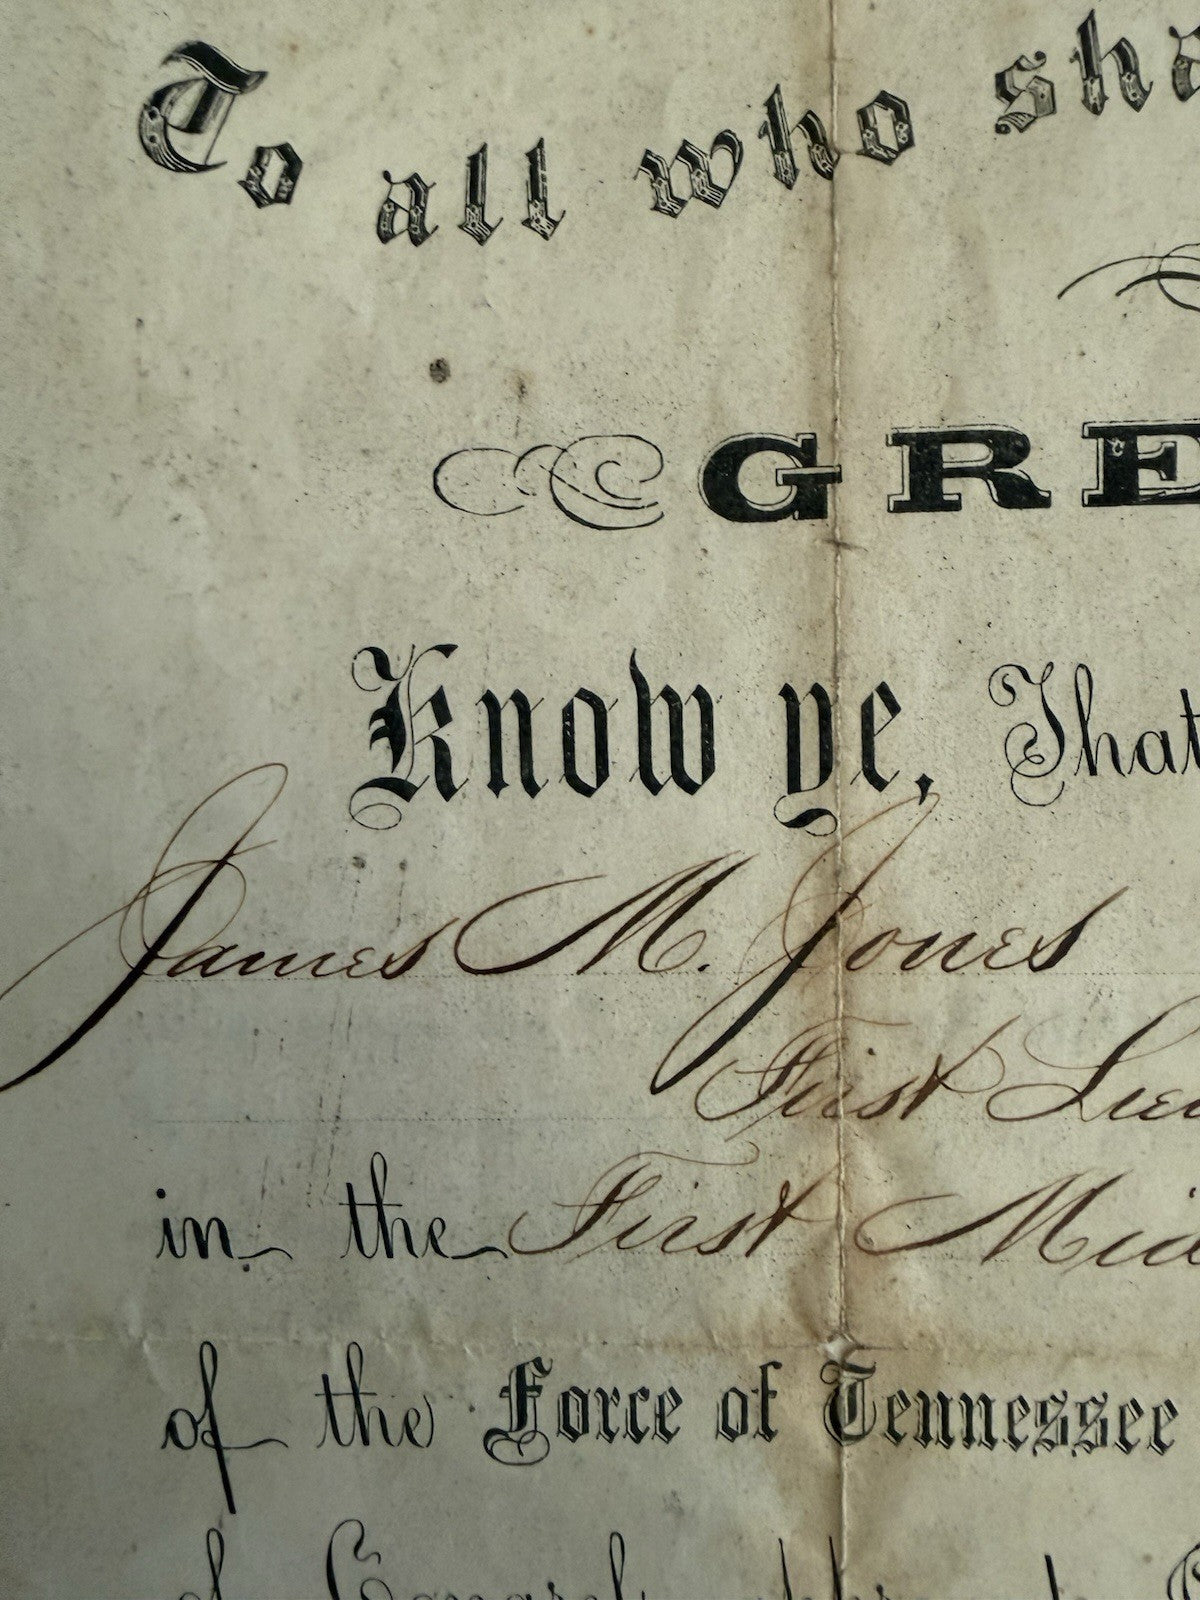 To all who sha
GRE
Know ye, That
James M. Jones
First Lieu
in the First Mid
of the Force of Tennessee
of